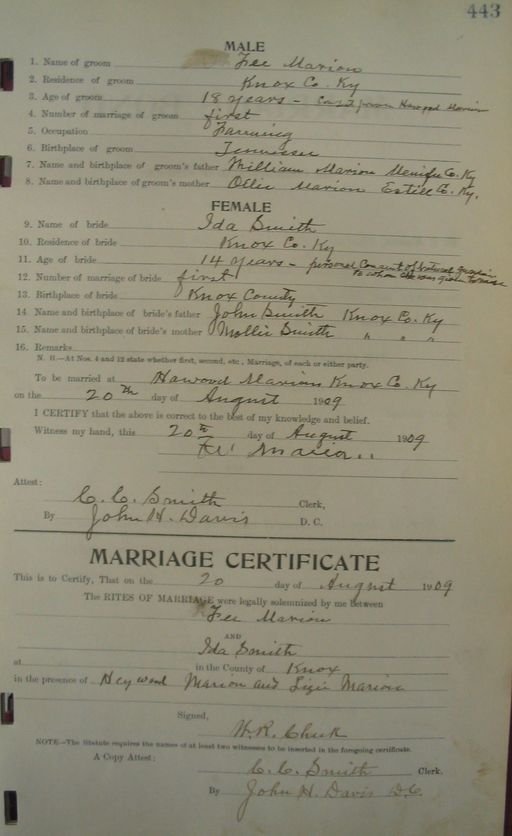 443
MALE
1. Name of groom Fee Marion
2. Residence of groom Knox Co. Ky
3. Age of groom 18 years – Haywood Marion
4. Number of marriage of groom first
5. Occupation Farming
6. Birthplace of groom Tennessee
7. Name and birthplace of groom's father William Marion Menifee Co. Ky
8. Name and birthplace of groom's mother Ollie Marion Estill Co. Ky.
FEMALE
9. Name of bride Ida Smith
10. Residence of bride Knox Co. Ky
11. Age of bride 14 years – personal Consent of Natural
to whom she was given to raise
12. Number of marriage of bride first
13. Birthplace of bride Knox County
14 Name and birthplace of bride's father John Smith Knox Co. Ky
15. Name and birthplace of bride's mother Mollie Smith " " "
16. Remarks
N. B.—At Nos. 4 and 12 state whether first, second, etc., Marriage, of each or either party.
To be married at Haywood Marions Knox Co. Ky
on the 20th day of August 1909
I CERTIFY that the above is correct to the best of my knowledge and belief.
Witness my hand, this 20th day of August 1909
Fee Marion
Attest:
C. C. Smith Clerk,
By John H. Davis D. C.
MARRIAGE CERTIFICATE
This is to Certify, That on the 20 day of August 1909
The RITES OF MARRIAGE were legally solemnized by me between
Fee Marion
AND
Ida Smith
at in the County of Knox
in the presence of Heywood Marion and Lizie Marion
Signed,
W. R.
NOTE—The Statute requires the names of at least two witnesses to be inserted in the foregoing certificate.
A Copy Attest:
C. C. Smith Clerk.
By John H. Davis D.C.